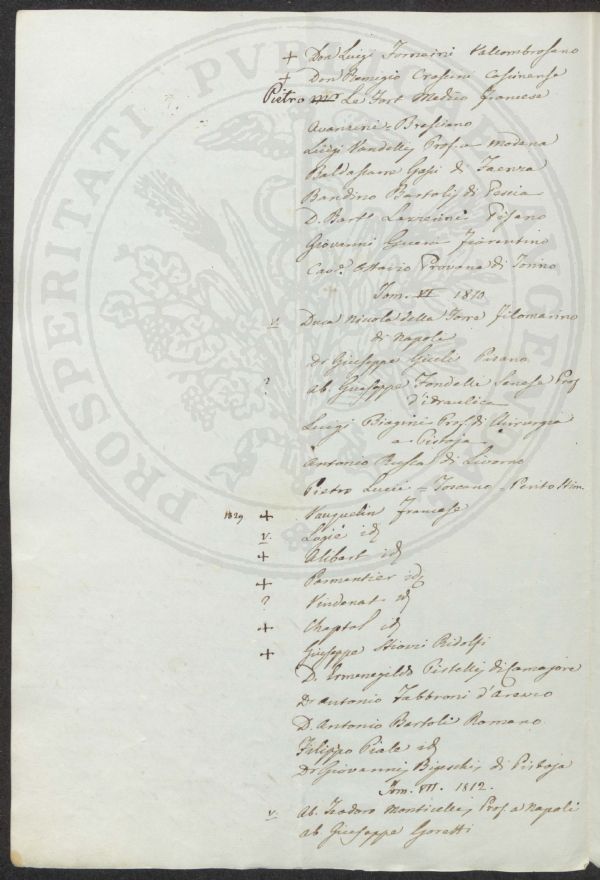 + Don Luigi Fornaini Valombrosano
+ Don Remigio Crosini Casinense
Pietro Mr Le Fort Medico francese
Avanzini = Bresciano
Luigi Vandelli, Prof. a Modena
Baldassarre Gessi di Faenza
Bandino Bartolij di Pescia
D. Bart. Lazzerini Pisano
Giovanni Fiorentino
Cav. Ottavio Provana di Torino
Tom. VI 1810
v. Duca Niccola della Torre filomarino
di Napoli
Dr Giuseppe Giuli Pisano
? ab. Giuseppe Fondelli Senese Prof
d'idraulica
Luigi Biagini Prof. di Chirurgia
a Pistoja
Antonio Rusca di Livorno
Pietro Lucii = Toscano = Perito
1829 + Vauquelin francese
v. Lugié id
+ Alibert id
+ Parmentier id
? Vindenat id
+ Chaptal id
+ Giuseppe Stiozzi Ridolfi
D. Ermenegildo Pistelli, di Camajore
Dr Antonio Fabbroni d'Arezzo
D. Antonio Bartoli Romano
Filippo Piale id
Dr Giovanni Bigeschi, di Pistoja
Tom. VII. 1812.
v. Ab. Teodoro Monticelli, Prof. a Napoli
ab Giuseppe Goretti
PROSPERITATI PVBLICAE AVGENDAE